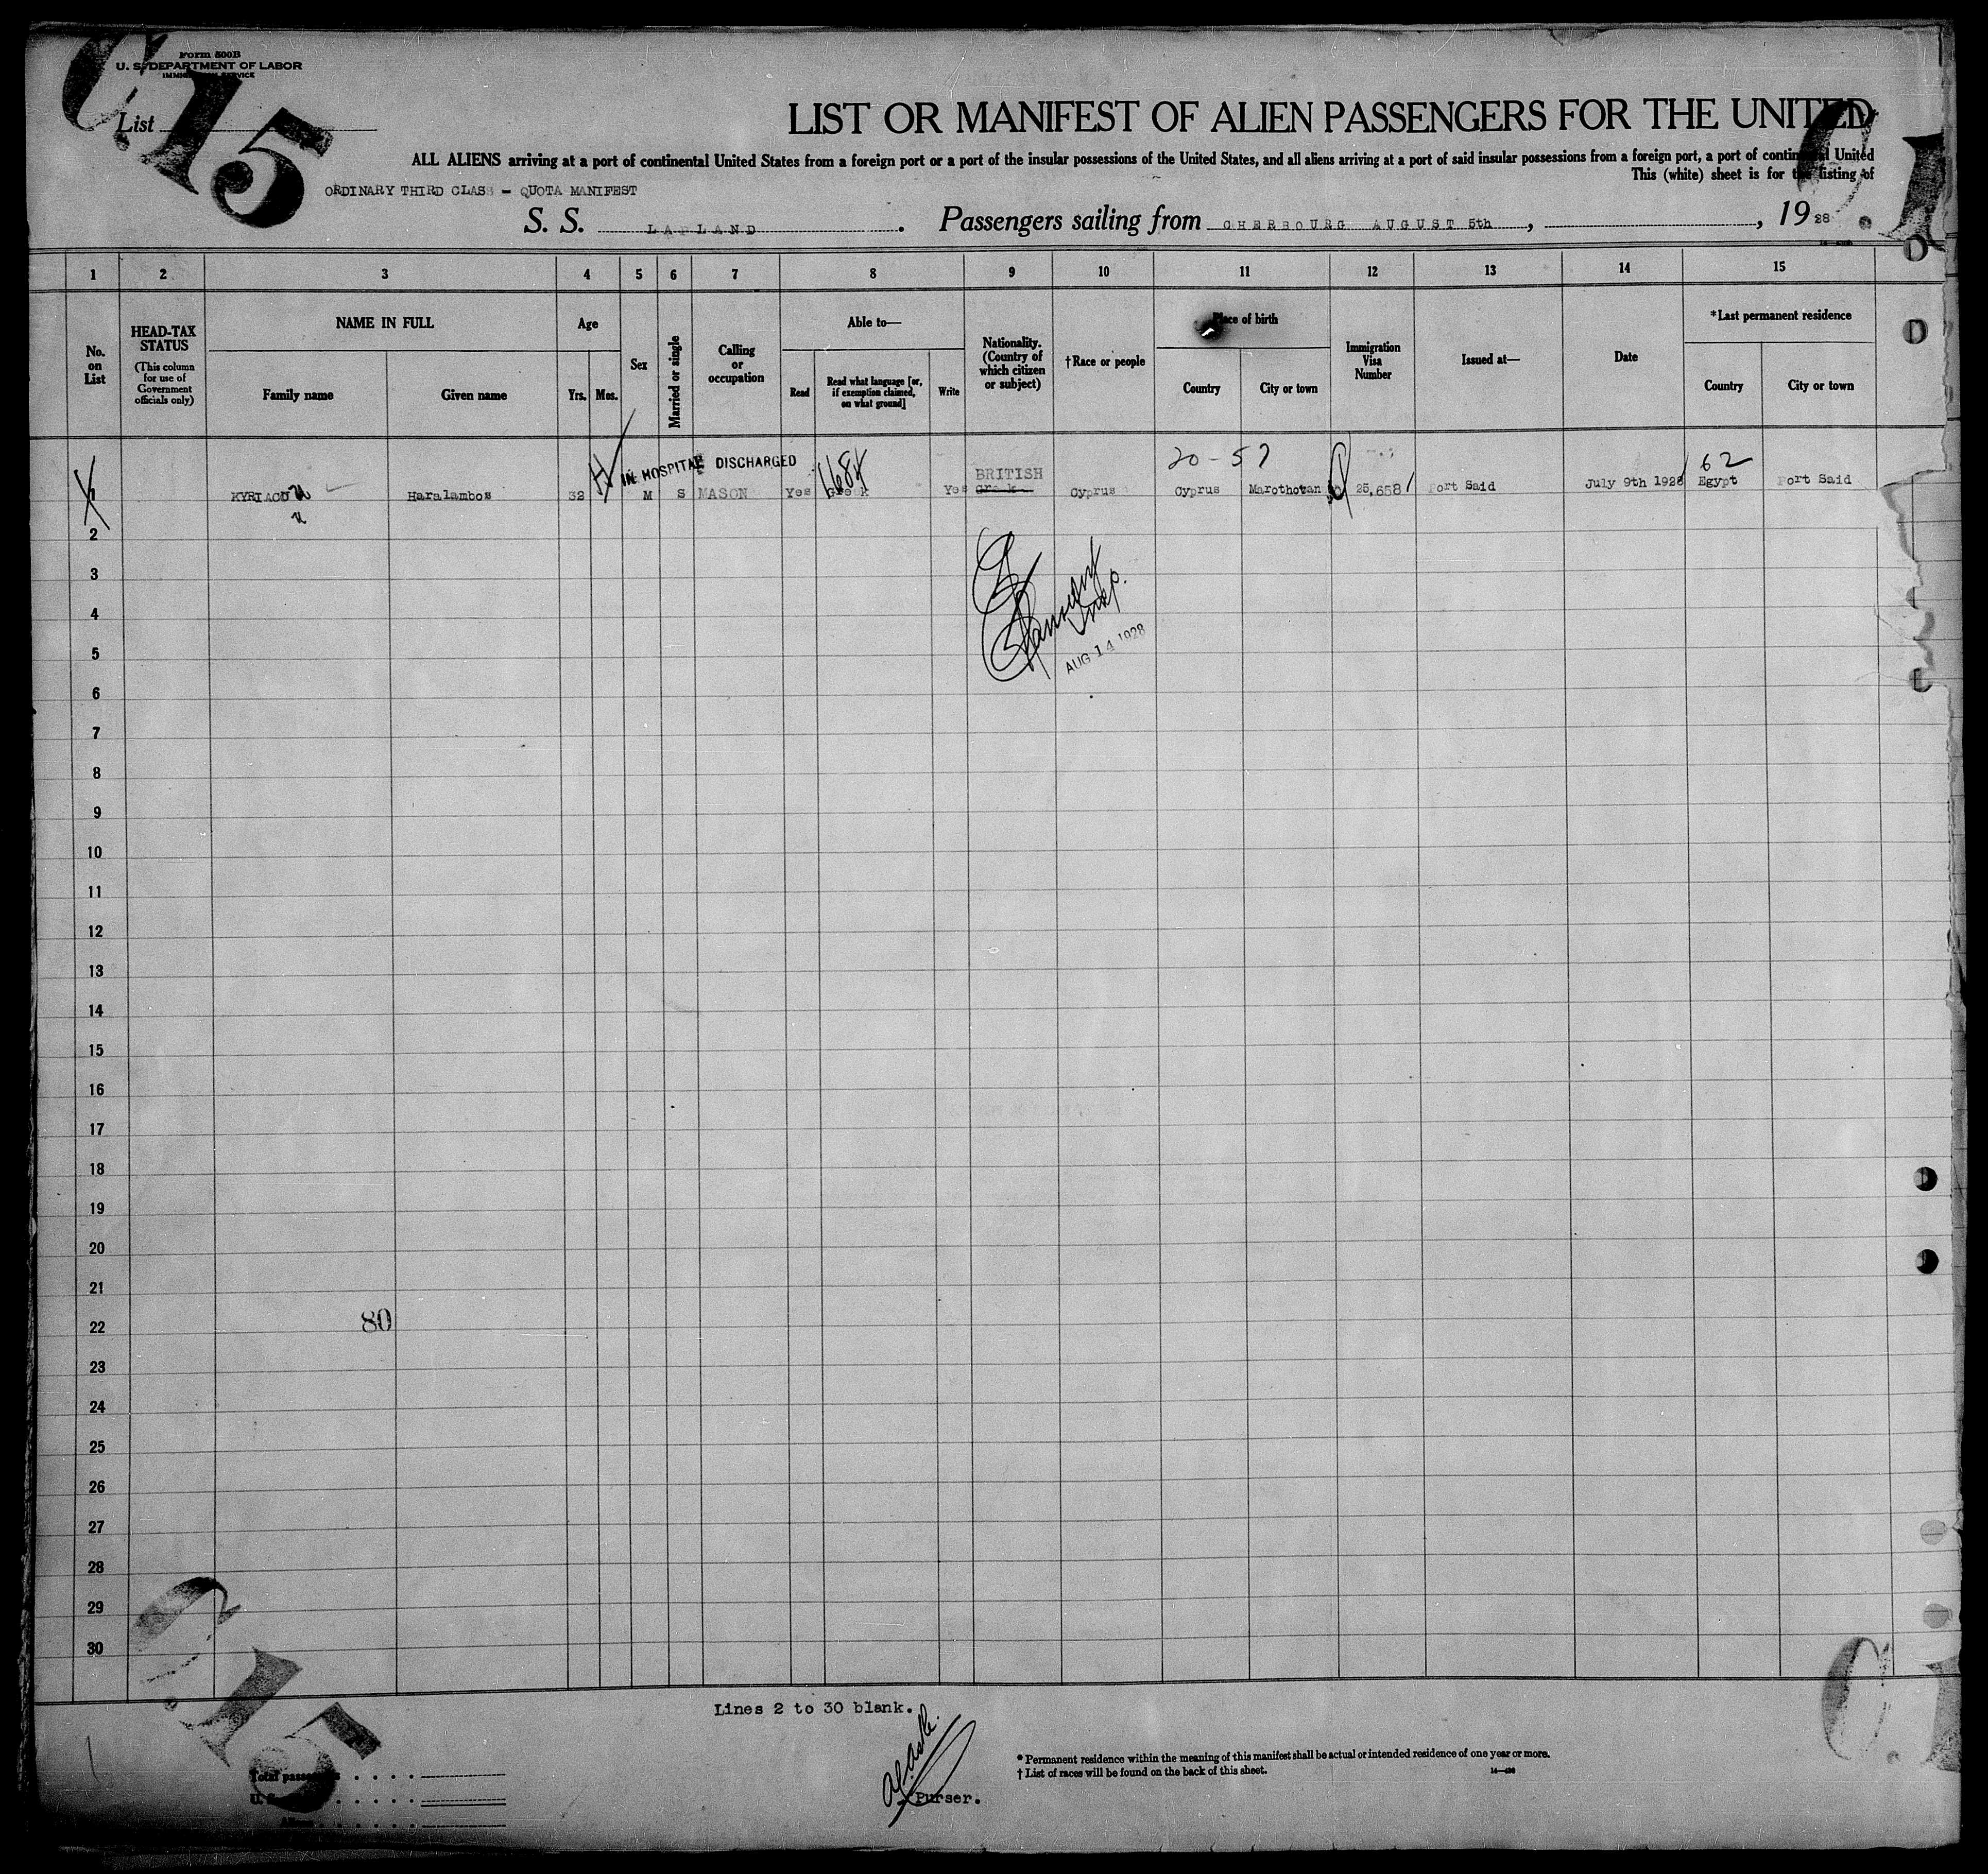 Form 500B
U. S. DEPARTMENT OF LABOR
IMMIGRATION SERVICE
C. 15
List
LIST OR MANIFEST OF ALIEN PASSENGERS FOR THE UNITED
ALL ALIENS arriving at a port of continental United States from a foreign port or a port of the insular possessions of the United States, and all aliens arriving at a port of said insular possessions from a foreign port, a port of continental United
This (white) sheet is for the listing of
ORDINARY THIRD CLASS - QUOTA MANIFEST
S. S. LAPLAND. Passengers sailing from CHERBOURG AUGUST 5th, , 1928
1 2 3 4 5 6 7 8 9 10 11 12 13 14 15
No. on List
HEAD-TAX STATUS
(This column for use of Government officials only)
NAME IN FULL
Family name Given name
Age
Yrs. Mos.
Sex
Married or single
Calling or occupation
Able to—
Read
Read what language [or, if exemption claimed, on what ground]
Write
Nationality. (Country of which citizen or subject)
†Race or people
Place of birth
Country City or town
Immigration Visa Number
Issued at—
Date
*Last permanent residence
Country City or town
IN HOSPITAL DISCHARGED
20-57
62
BRITISH
1 KYRIACOU Haralambos 32 M S MASON Yes Greek Yes Greek Cyprus Cyprus Marothotan 25,658 Port Said July 9th 1928 Egypt Port Said
Insp.
AUG 14 1928
2
3
4
5
6
7
8
9
10
11
12
13
14
15
16
17
18
19
20
21
80
22
23
24
25
26
27
28
29
30
C. 15
Lines 2 to 30 blank.
Purser.
Total passengers
* Permanent residence within the meaning of this manifest shall be actual or intended residence of one year or more.
† List of races will be found on the back of this sheet.